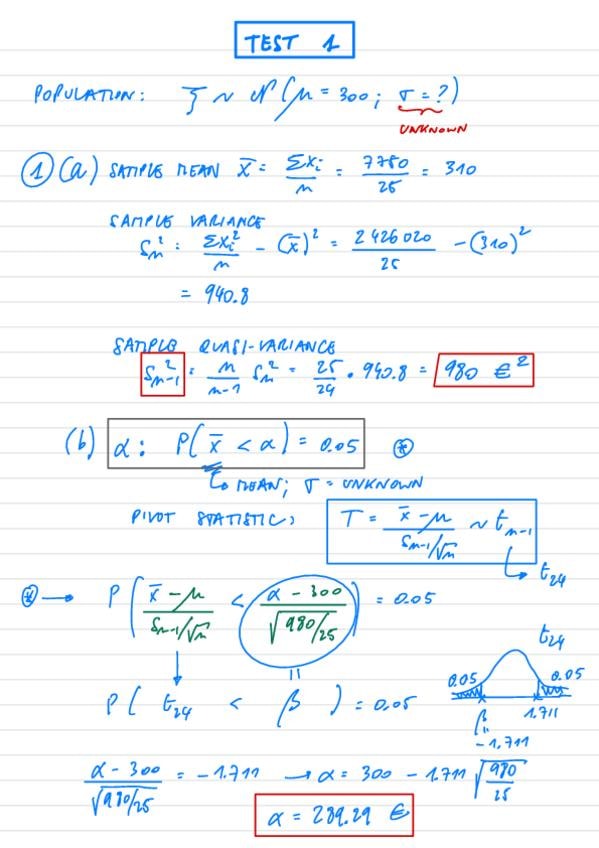 TEST 1
POPULATION: ξ ~ N(μ = 300; σ = ?)
UNKNOWN
1 (a) SAMPLE MEAN x̄ = Σxi/n = 7750/25 = 310
SAMPLE VARIANCE
Sn² = Σxi²/n - (x̄)² = 2426020/25 - (310)²
= 940.8
SAMPLE QUASI-VARIANCE
Sn-1² = n/n-1 Sn² = 25/24 · 940.8 = 980 €²
(b) α: P(x̄ < α) = 0.05 *
↳ MEAN; σ = UNKNOWN
PIVOT STATISTIC: T = x̄ - μ / Sn-1/√n ~ tn-1
↳ t24
* → P( x̄ - μ / Sn-1/√n < α - 300 / √980/25 ) = 0.05
t24
0.05 0.05
P( t24 < β ) = 0.05
β 1.711
= -1.711
α - 300 / √980/25 = -1.711 → α = 300 - 1.711 √980/25
α = 289.29 €